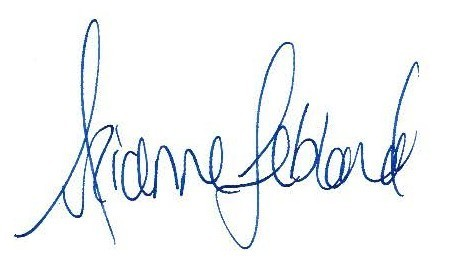 Arianne Leblond